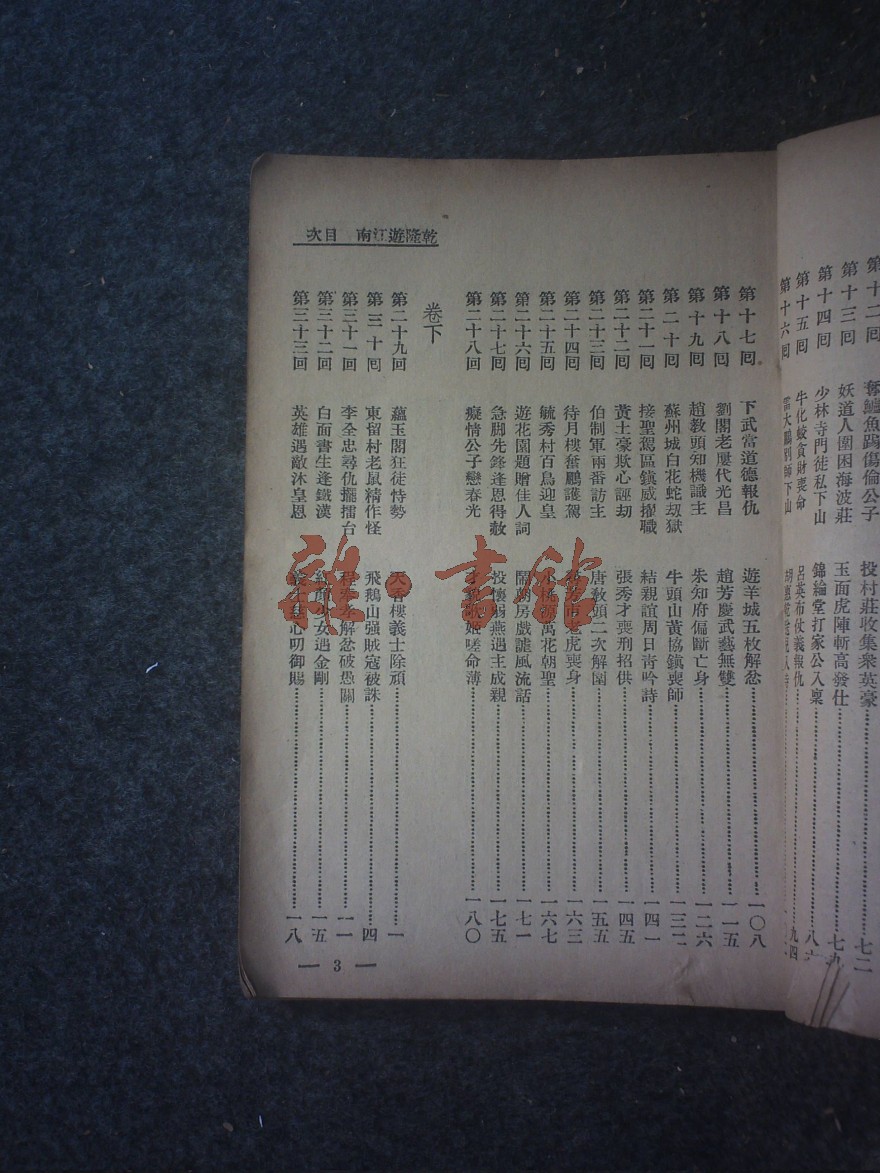 第十二回 奪鱸魚踢傷倫公子 投村莊收集衆英豪 七二
第十三回 妖道人圍困海波莊 玉面虎陣斬高發仕 七九
第十四回 少林寺門徒私下山 錦綸堂打家公入稟 八
第十五回 牛化蛟貪財喪命 呂英布仗義報仇 九四
第十六回 雷大鵬別師下山 胡惠乾
乾隆遊江南 目次
第十七回 下武當道德報仇 遊羊城五枚解忿 一〇八
第十八回 劉閣老屢代光昌 趙芳慶武藝無雙 一一五
第十九回 趙教頭知機識主 朱知府偏斷亡身 一二六
第二十回 蘇州城白花蛇劫獄 牛頭山黃協鎮喪師 一三二
第二十一回 接聖駕區鎮威擢職 結親誼周日青吟詩 一四一
第二十二回 黃土豪欺心誣劫 張秀才喪刑招供 一四五
第二十三回 伯制軍兩番訪主 唐敎頭二次解圍 一五五
第二十四回 待月樓奮鵬護駕 老虎喪身 一六三
第二十五回 毓秀村百鳥迎皇 小桃源萬花朝聖 一六七
第二十六回 遊花園題贈佳人詞 鬧新房戲謔風流話 一七一
第二十七回 急脚先鋒逢恩得赦 投懷弱燕遇主成親 一七五
第二十八回 癡情公子戀春光 才貌歌姬嗟命薄 一八〇
卷下
第二十九回 蘊玉閣狂徒恃勢 天香樓義士除頑 一
第三十回 東留村老鼠精作怪 飛鵝山强賊寇被誅 四
第三十一回 李全忠尋仇擺擂台 程奉孝解忿破愚關 一一
第三十二回 白面書生逢鐵漢 紅顏少女遇金剛 一五
第三十三回 英雄遇敵沐皇恩 義士慈心叨御賜 一八
— 3 —
雜·書館